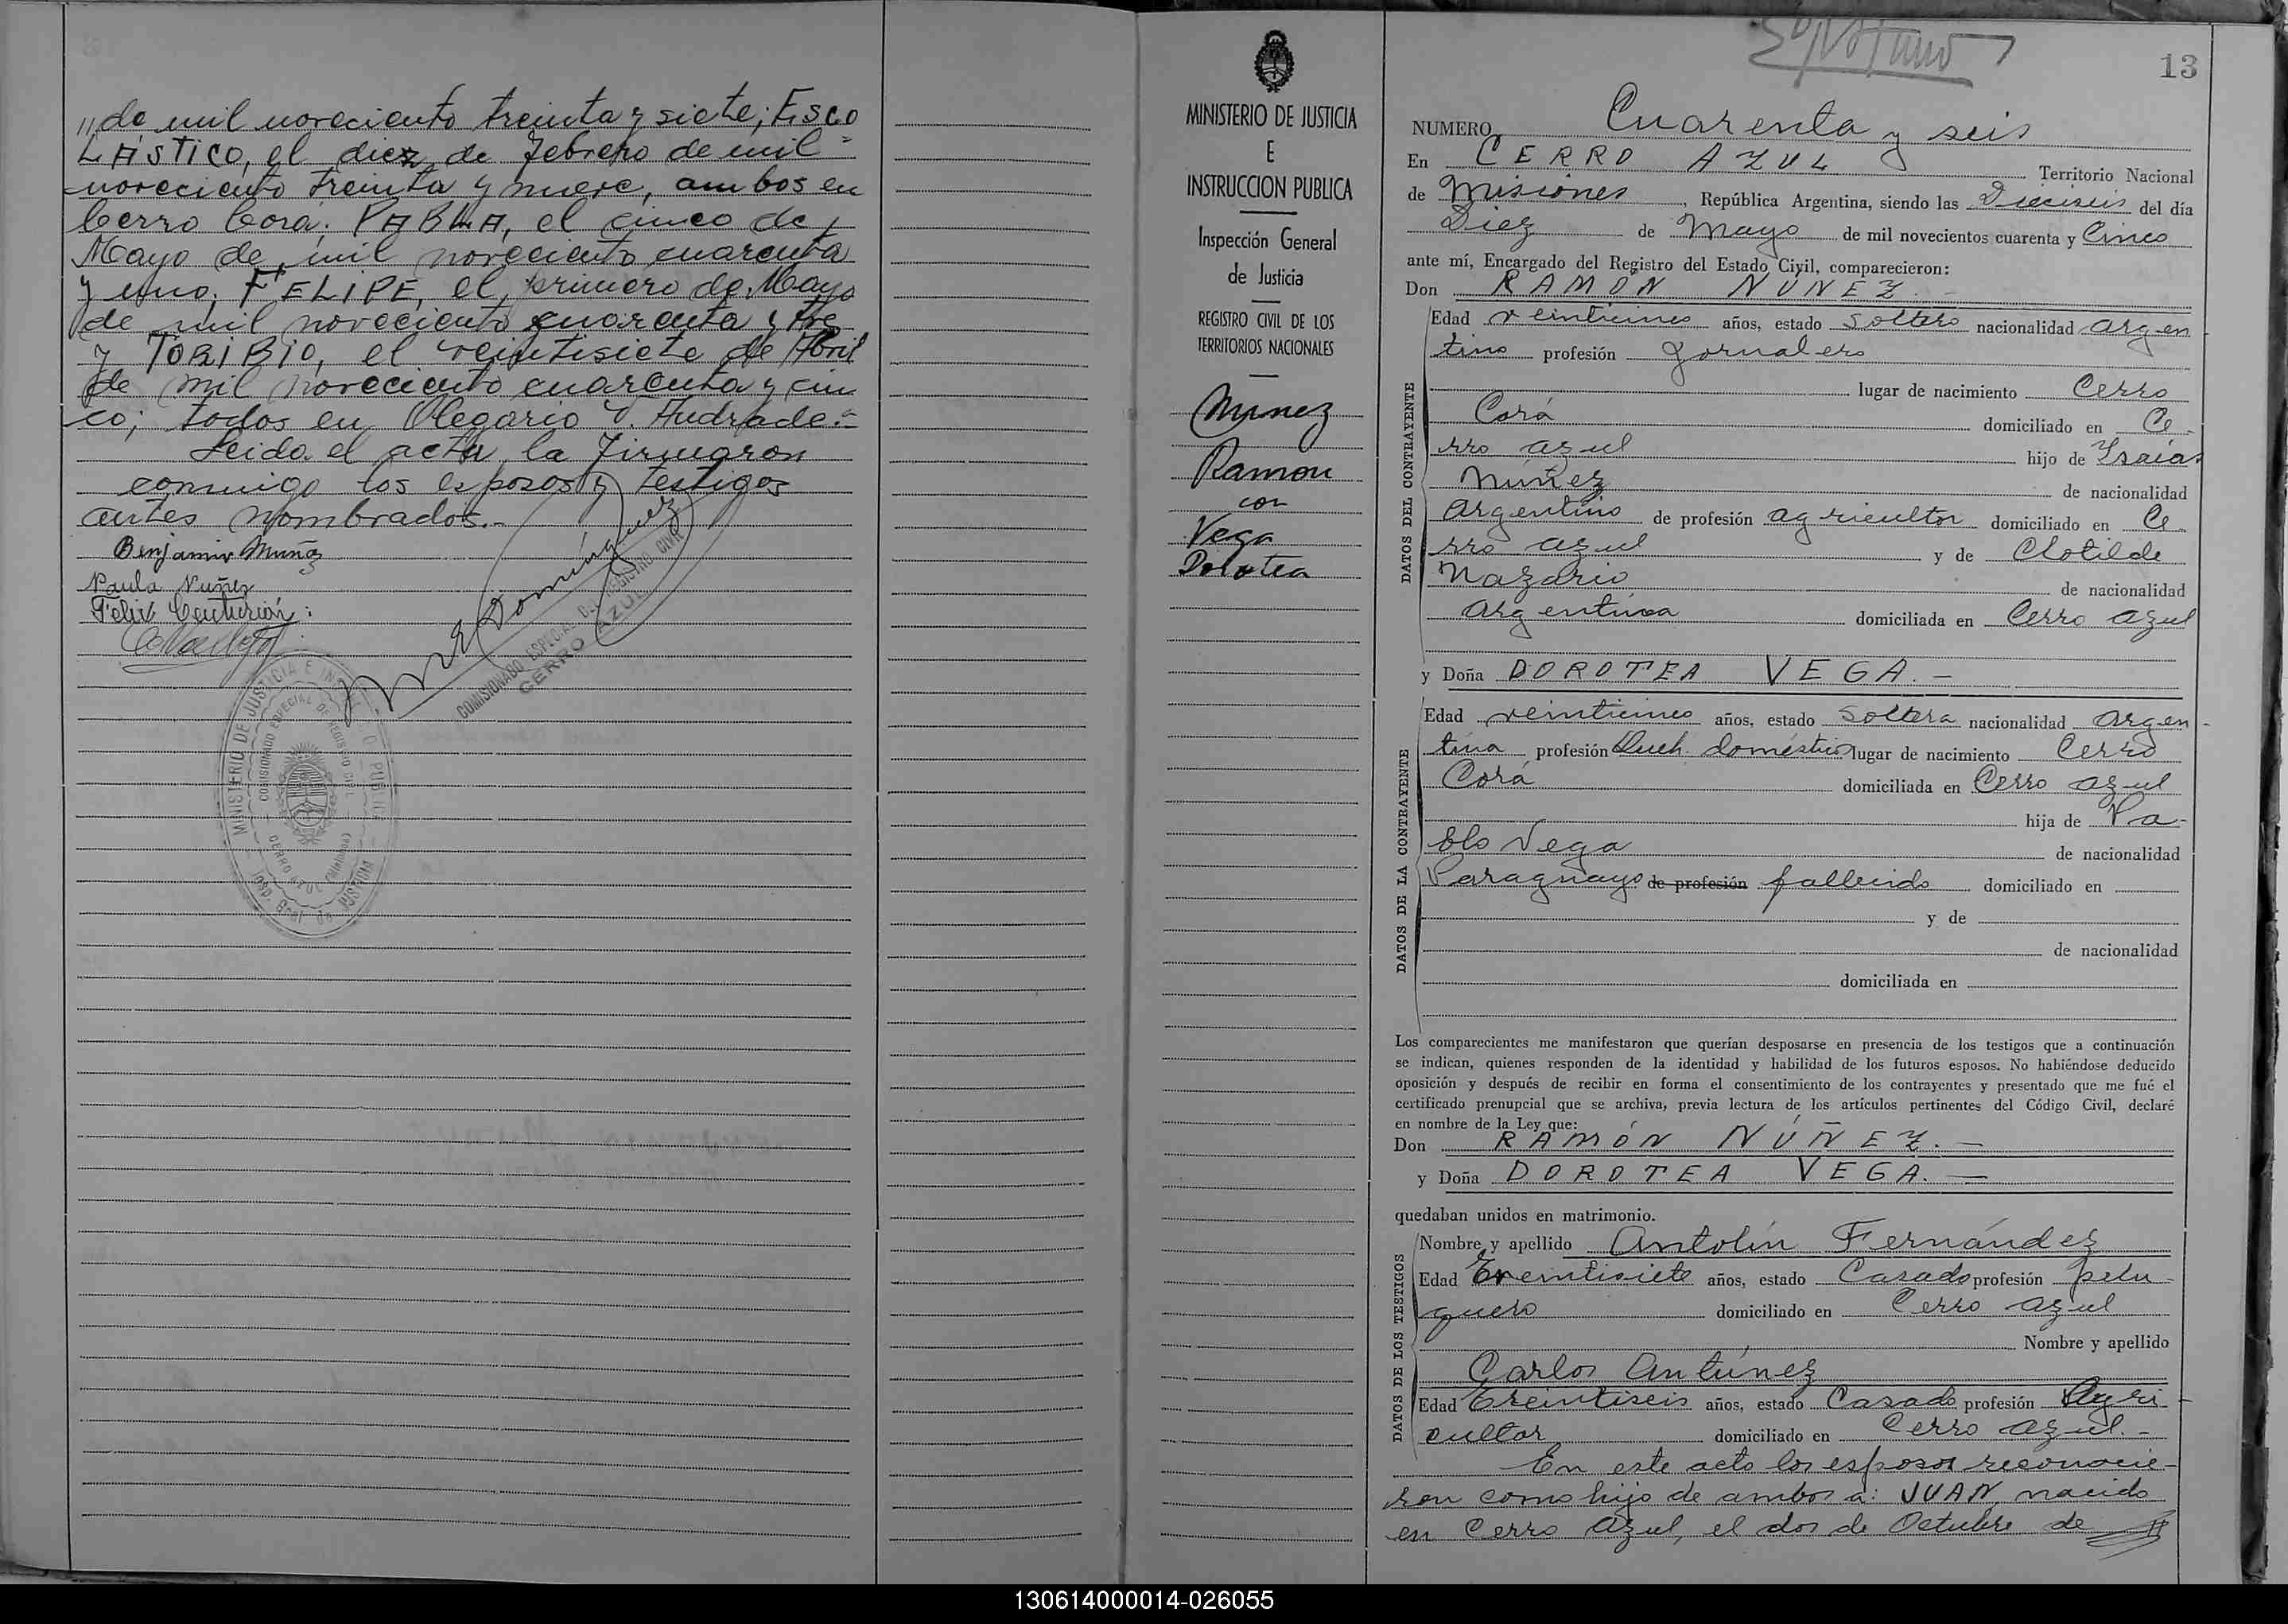 „de mil noveciento treinta y siete; ESCO
LÁSTICO, el diez de Febrero de mil
noveciento treinta y nueve, ambos en
Cerro Corá; PABLA, el cinco de
Mayo de mil noveciento cuarenta
y uno; FELIPE, el primero de Mayo
de mil noveciento cuarenta y tres
y TORIBIO, el veintisiete de Abril
de mil noveciento cuarenta y cin
co; todos en Olegario V. Andrade.-
Leida el acta, la firmaron
conmigo los esposos y testigos
antes nombrados.-
Benjamin Muñoz
Paula Nuñez
Felix Centurión
Dominguez
COMISIONADO ESPECIAL DEL REGISTRO CIVIL
CERRO AZUL
MINISTERIO DE JUSTICIA E INST. PUBLICA
COMISIONADO ESPECIAL DE REGISTRO CIVIL
CERRO AZUL (Misiones)
Insp. Gral. de JUSTICIA
MINISTERIO DE JUSTICIA
E
INSTRUCCION PUBLICA
Inspección General
de Justicia
REGISTRO CIVIL DE LOS
TERRITORIOS NACIONALES
Nunez
Ramon
con
Vega
Dorotea
13
NUMERO Cuarenta y seis
En CERRO AZUL Territorio Nacional
de Misiones, República Argentina, siendo las Dieciseis del día
Diez de Mayo de mil novecientos cuarenta y Cinco
ante mí, Encargado del Registro del Estado Civil, comparecieron:
Don RAMÓN NÚÑEZ.-
DATOS DEL CONTRAYENTE
Edad veinticinco años, estado Soltero nacionalidad argen
tino profesión Jornalero
lugar de nacimiento Cerro
Corá domiciliado en Ce-
rro azul hijo de Isaías
Núñez de nacionalidad
Argentino de profesión agricultor domiciliado en Ce-
rro azul y de Clotilde
Nazario de nacionalidad
Argentina domiciliada en Cerro azul
y Doña DOROTEA VEGA.-
DATOS DE LA CONTRAYENTE
Edad veinticinco años, estado Soltera nacionalidad Argen-
tina profesión Queh. domésticos lugar de nacimiento Cerro
Corá domiciliada en Cerro azul
hija de Pa-
blo Vega de nacionalidad
Paraguayo de profesión fallecido domiciliado en
y de
de nacionalidad
domiciliada en
Los comparecientes me manifestaron que querían desposarse en presencia de los testigos que a continuación
se indican, quienes responden de la identidad y habilidad de los futuros esposos. No habiéndose deducido
oposición y después de recibir en forma el consentimiento de los contrayentes y presentado que me fué el
certificado prenupcial que se archiva, previa lectura de los artículos pertinentes del Código Civil, declaré
en nombre de la Ley que:
Don RAMÓN NÚÑEZ.-
y Doña DOROTEA VEGA.-
quedaban unidos en matrimonio.
DATOS DE LOS TESTIGOS
Nombre y apellido Antolín Fernández
Edad treintisiete años, estado Casado profesión pelu-
quero domiciliado en Cerro azul
Nombre y apellido
Carlos Antúnez
Edad treintiseis años, estado Casado profesión Agri-
cultor domiciliado en Cerro azul.-
En este acto los esposos reconocie-
ron como hijo de ambos a: JUAN, nacido
en Cerro Azul, el dos de Octubre de
130614000014-026055